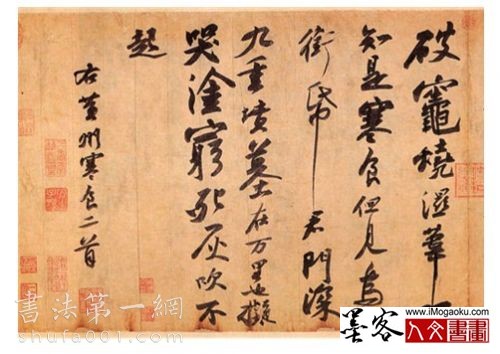 破竈燒濕葦
知是寒食但見烏
銜帋君門深
九重墳墓在万里也擬
哭塗窮死灰吹不
起
右黃州寒食二首
書法第一網
shufa001.com
www.iMogaoku.com
墨客
人文書畫